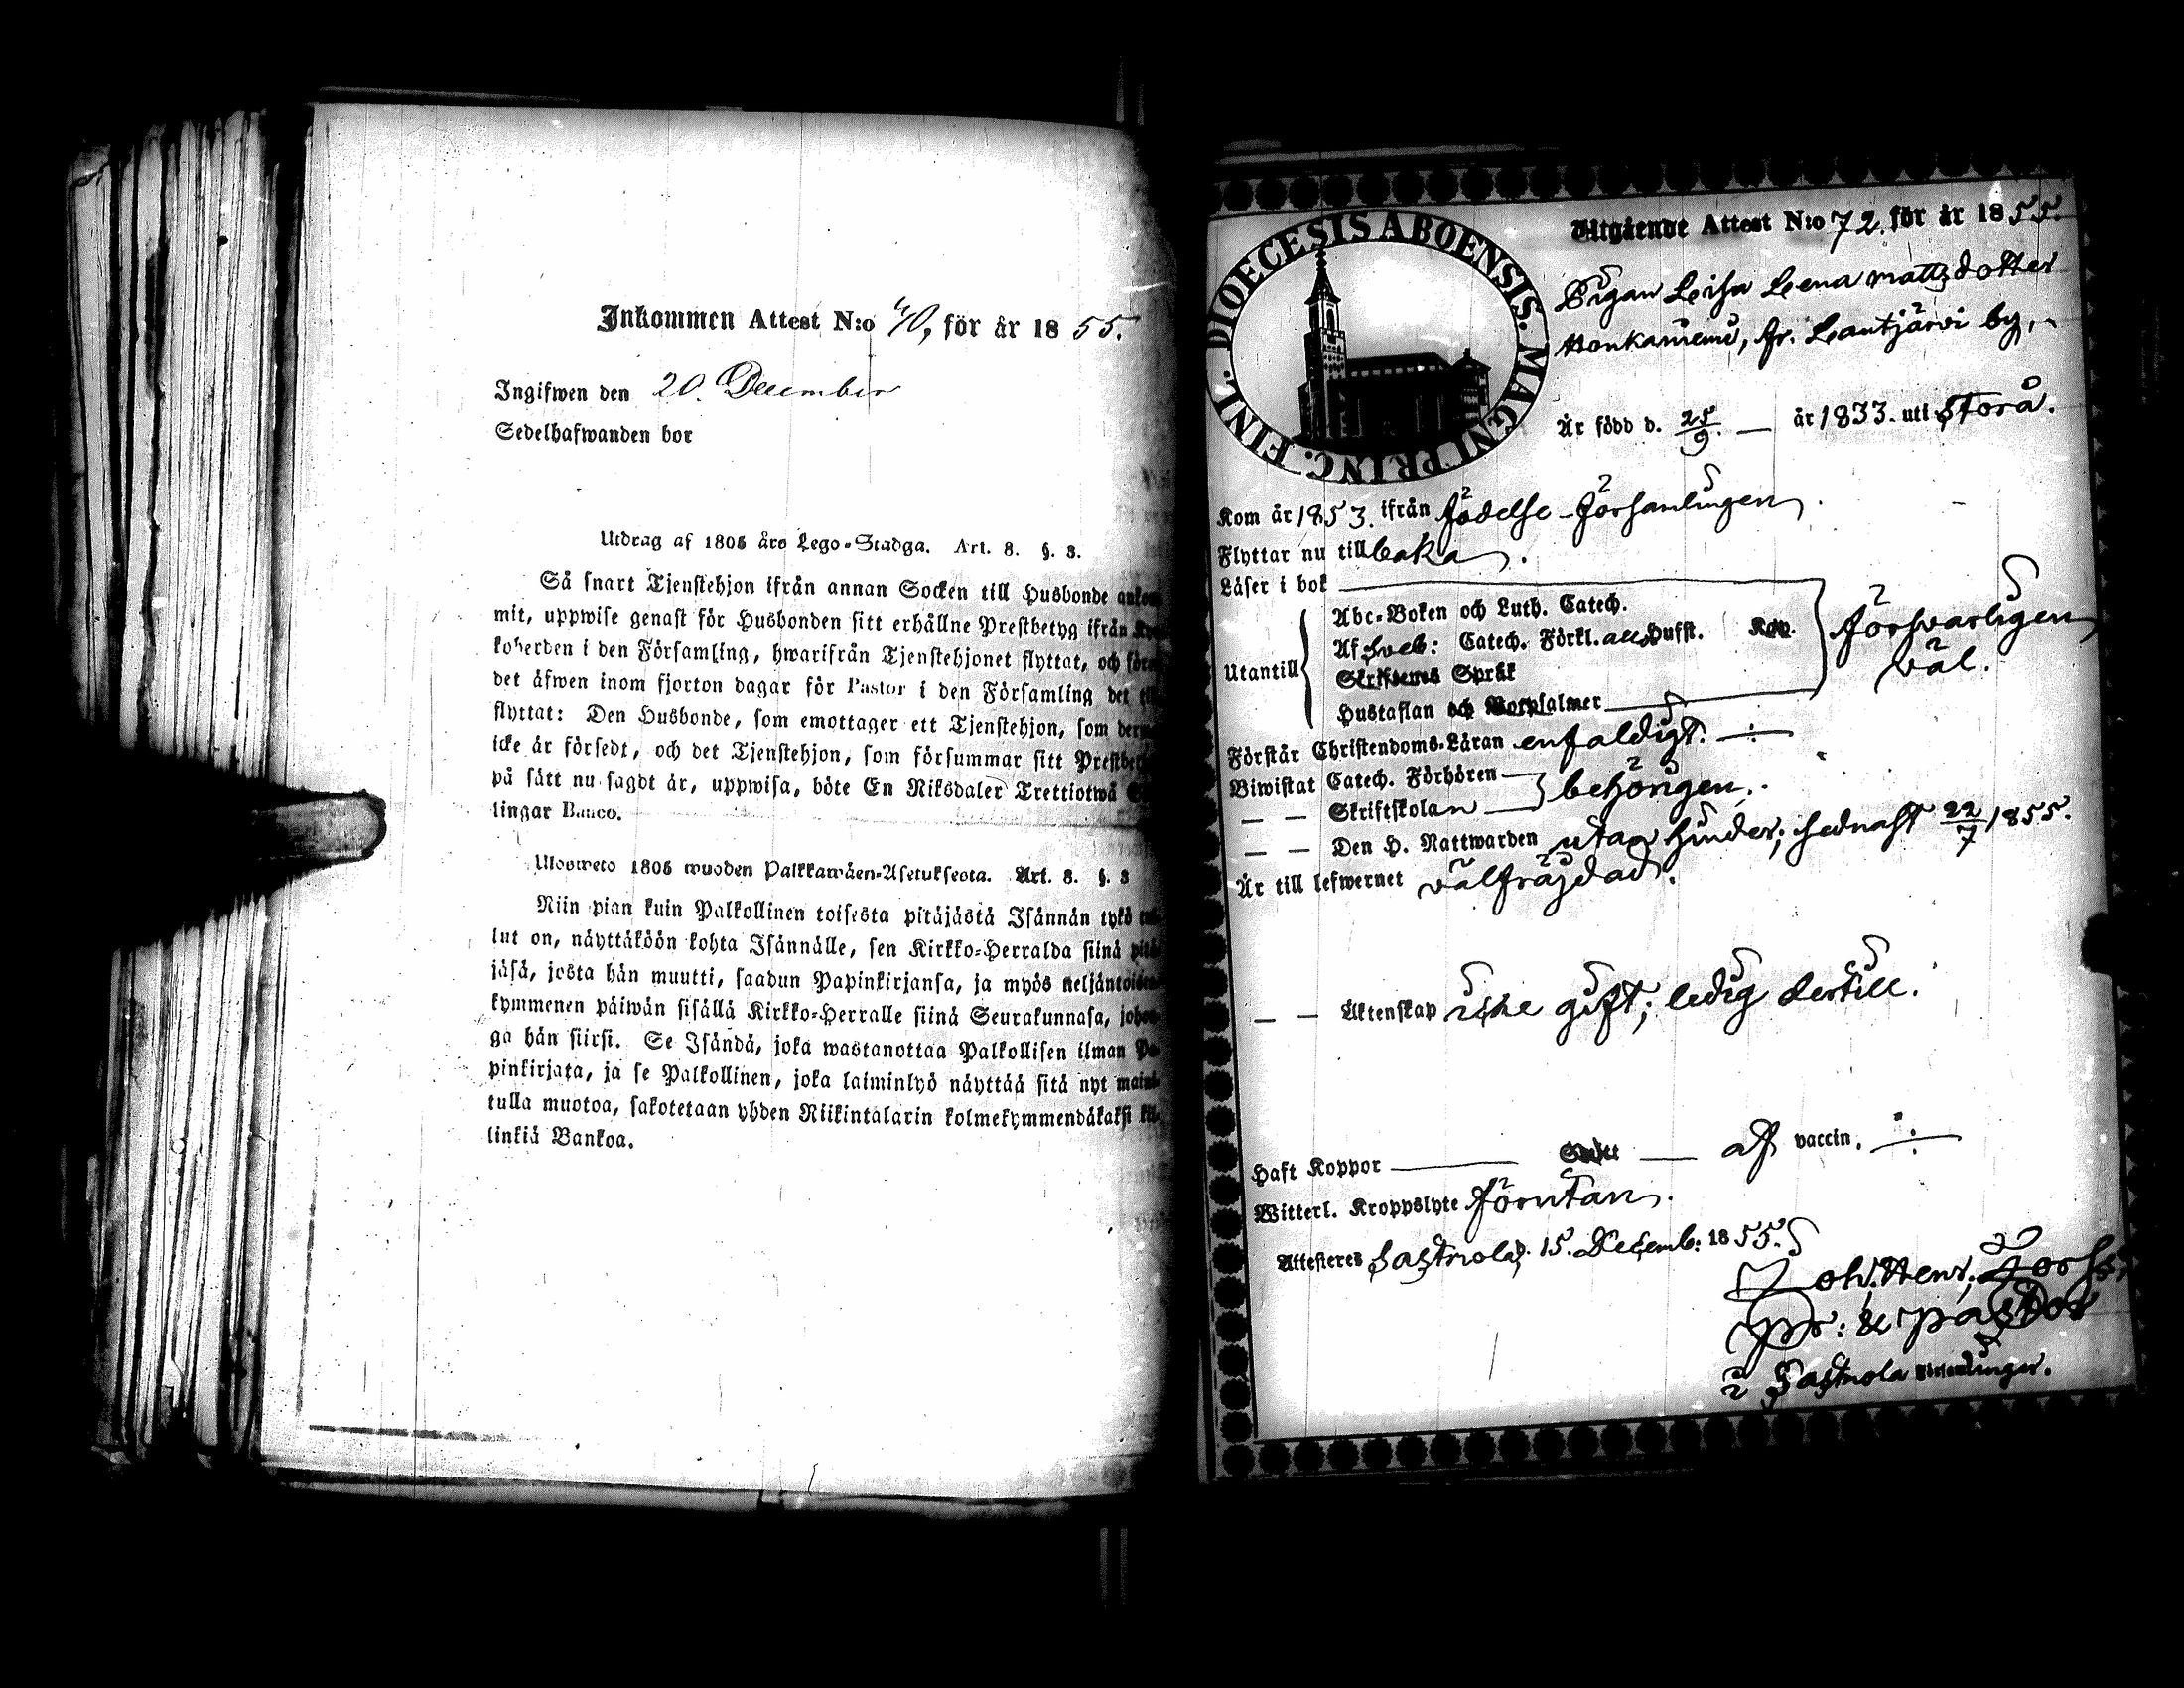 Inkommen Attest N:o 40, för år 1855.
Ingifwen den 20. December
Sedelhafwanden bor
Utdrag af 1805 års Lego-Stadga. Art. 8. §. 3.
Så snart Tjenstehjon ifrån annan Socken till Husbonde
mit, uppwise genast för Husbonden sitt erhållne Prestbetyg ifrån
koherden i den Församling, hwarifrån Tjenstehjonet flyttat, och
det äfwen inom fjorton dagar för Pastor i den Församling det
flyttat: Den Husbonde, som emottager ett Tjenstehjon, som
icke är försedt, och det Tjenstehjon, som försummar sitt
på sätt nu sagdt är, uppwisa, böte En Riksdaler Trettiotwå
lingar Banco.
Uloswete 1805 wuoden Palkkawäen-Asetuksesta. Art. 8. §. 3
Niin pian kuin Palkollinen toisesta pitäjästä Isännän tykö
lut on, näyttäköön kohta Isännälle, sen Kirkko-Herralda siinä
jäsä, josta hän muutti, saadun Papinkirjansa, ja myös
kymmenen päiwän sisällä Kirkko-Herralle siinä Seurakunnasa,
ga hän siirsi. Se Isändä, joka wastanottaa Palkollisen ilman
pinkirjata, ja se Palkollinen, joka laiminlyö näyttää sitä nyt
tulla muotoa, sakotetaan yhden Riikintalarin kolmekymmendäkaksi
linkiä Bankoa.
DIOECESIS ABOENSIS. MAGNI PRINC. FINL.
Utgående Attest N:o 72. för år 1855.
Pigan Leisa Leena Mattsdotter
Honkaniemi, fr. Lautjärvi by,
Är född d. 25/9. — år 1833. uti Storå.
Kom år 1853. ifrån födelse-församlingen.
Flyttar nu tillbaka.
Läser i bok
Abc-Boken och Luth. Catech.
Utantill
Af Sveb: Catech. Förkl. all Hufst.
Skriftenes Språk
Hustaflan och Botpsalmer
försvarligen
väl.
Förstår Christendoms-Läran enfaldigt. —
Biwistat Catech. Förhören
— — Skriftskolan
behörigen.
— — Den H. Nattwarden utan hinder; sednast 22/7 1855.
Är till lefwernet välfräjdad.
— — Äktenskap icke gift; ledig dertill.
Haft Koppor — — af vaccin.
Witterl. Kroppslyte förutan.
Attesteres Sastmola d. 15. Decemb: 1855.
Joh. Henr.
Pr: & Pastor
i Sastmola Församlingar.